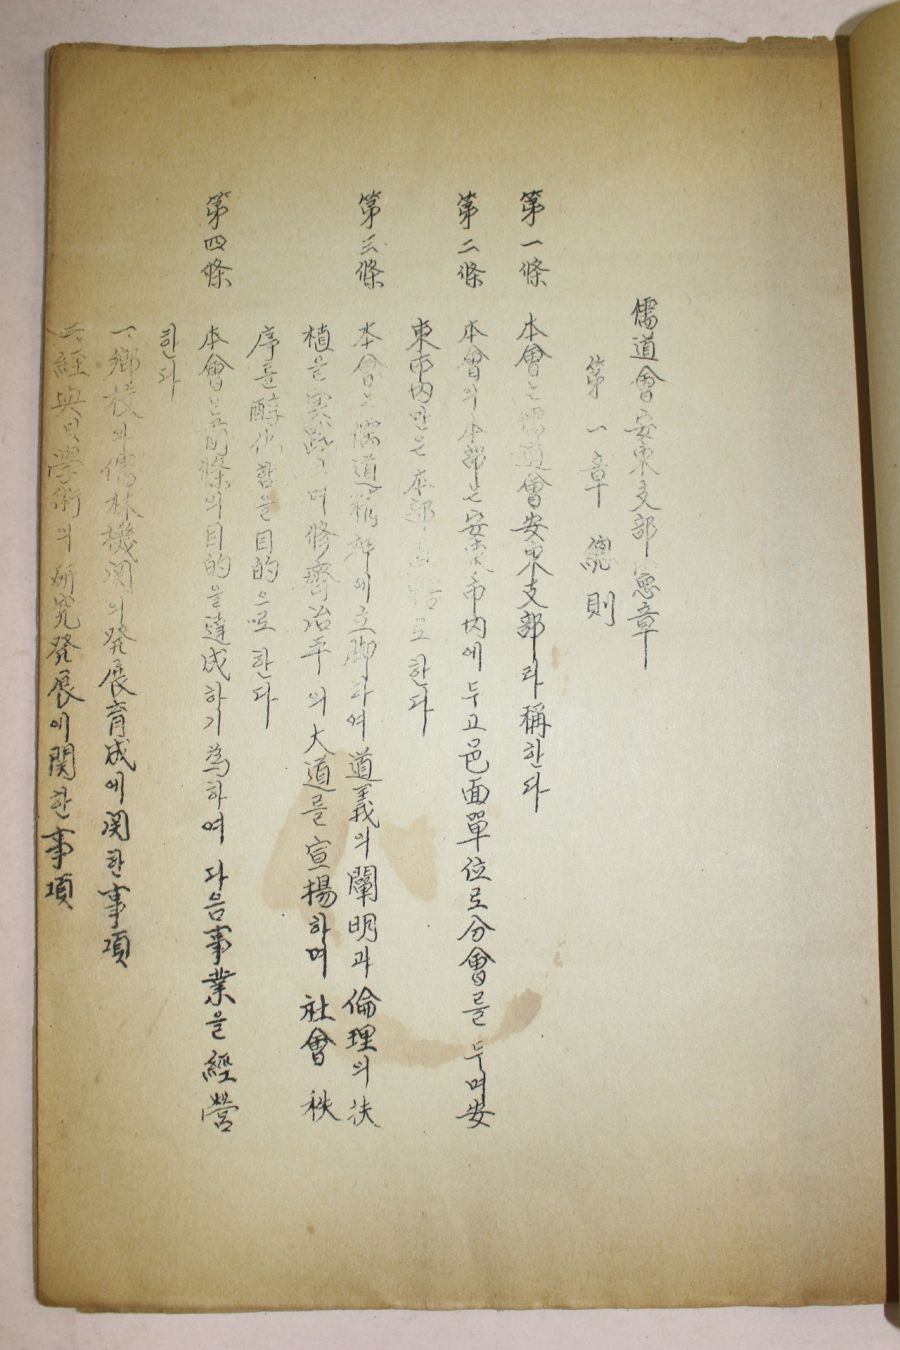 儒道會安東支部憲章
第一章 總則
第一條 本會는 儒道會安東支部라 稱한다
第二條 本會의 本部는 安東市内에 두고 邑面單位로 分會를 두며 安
東市内만은 本部 로 한다
第三條 本會는 儒道精神에 立脚하여 道義의 闡明과 倫理의 扶
植을 実践하며 修齊治平의 大道를 宣揚하며 社會秩
序를 醇化함을 目的으로 한다
第四條 本會는 前條의 目的을 達成하기 為하여 다음 事業을 經營
한다
一、鄕校와 儒林機関의 発展育成에 関한 事項
二、經典및 學術의 研究発展에 関한 事項